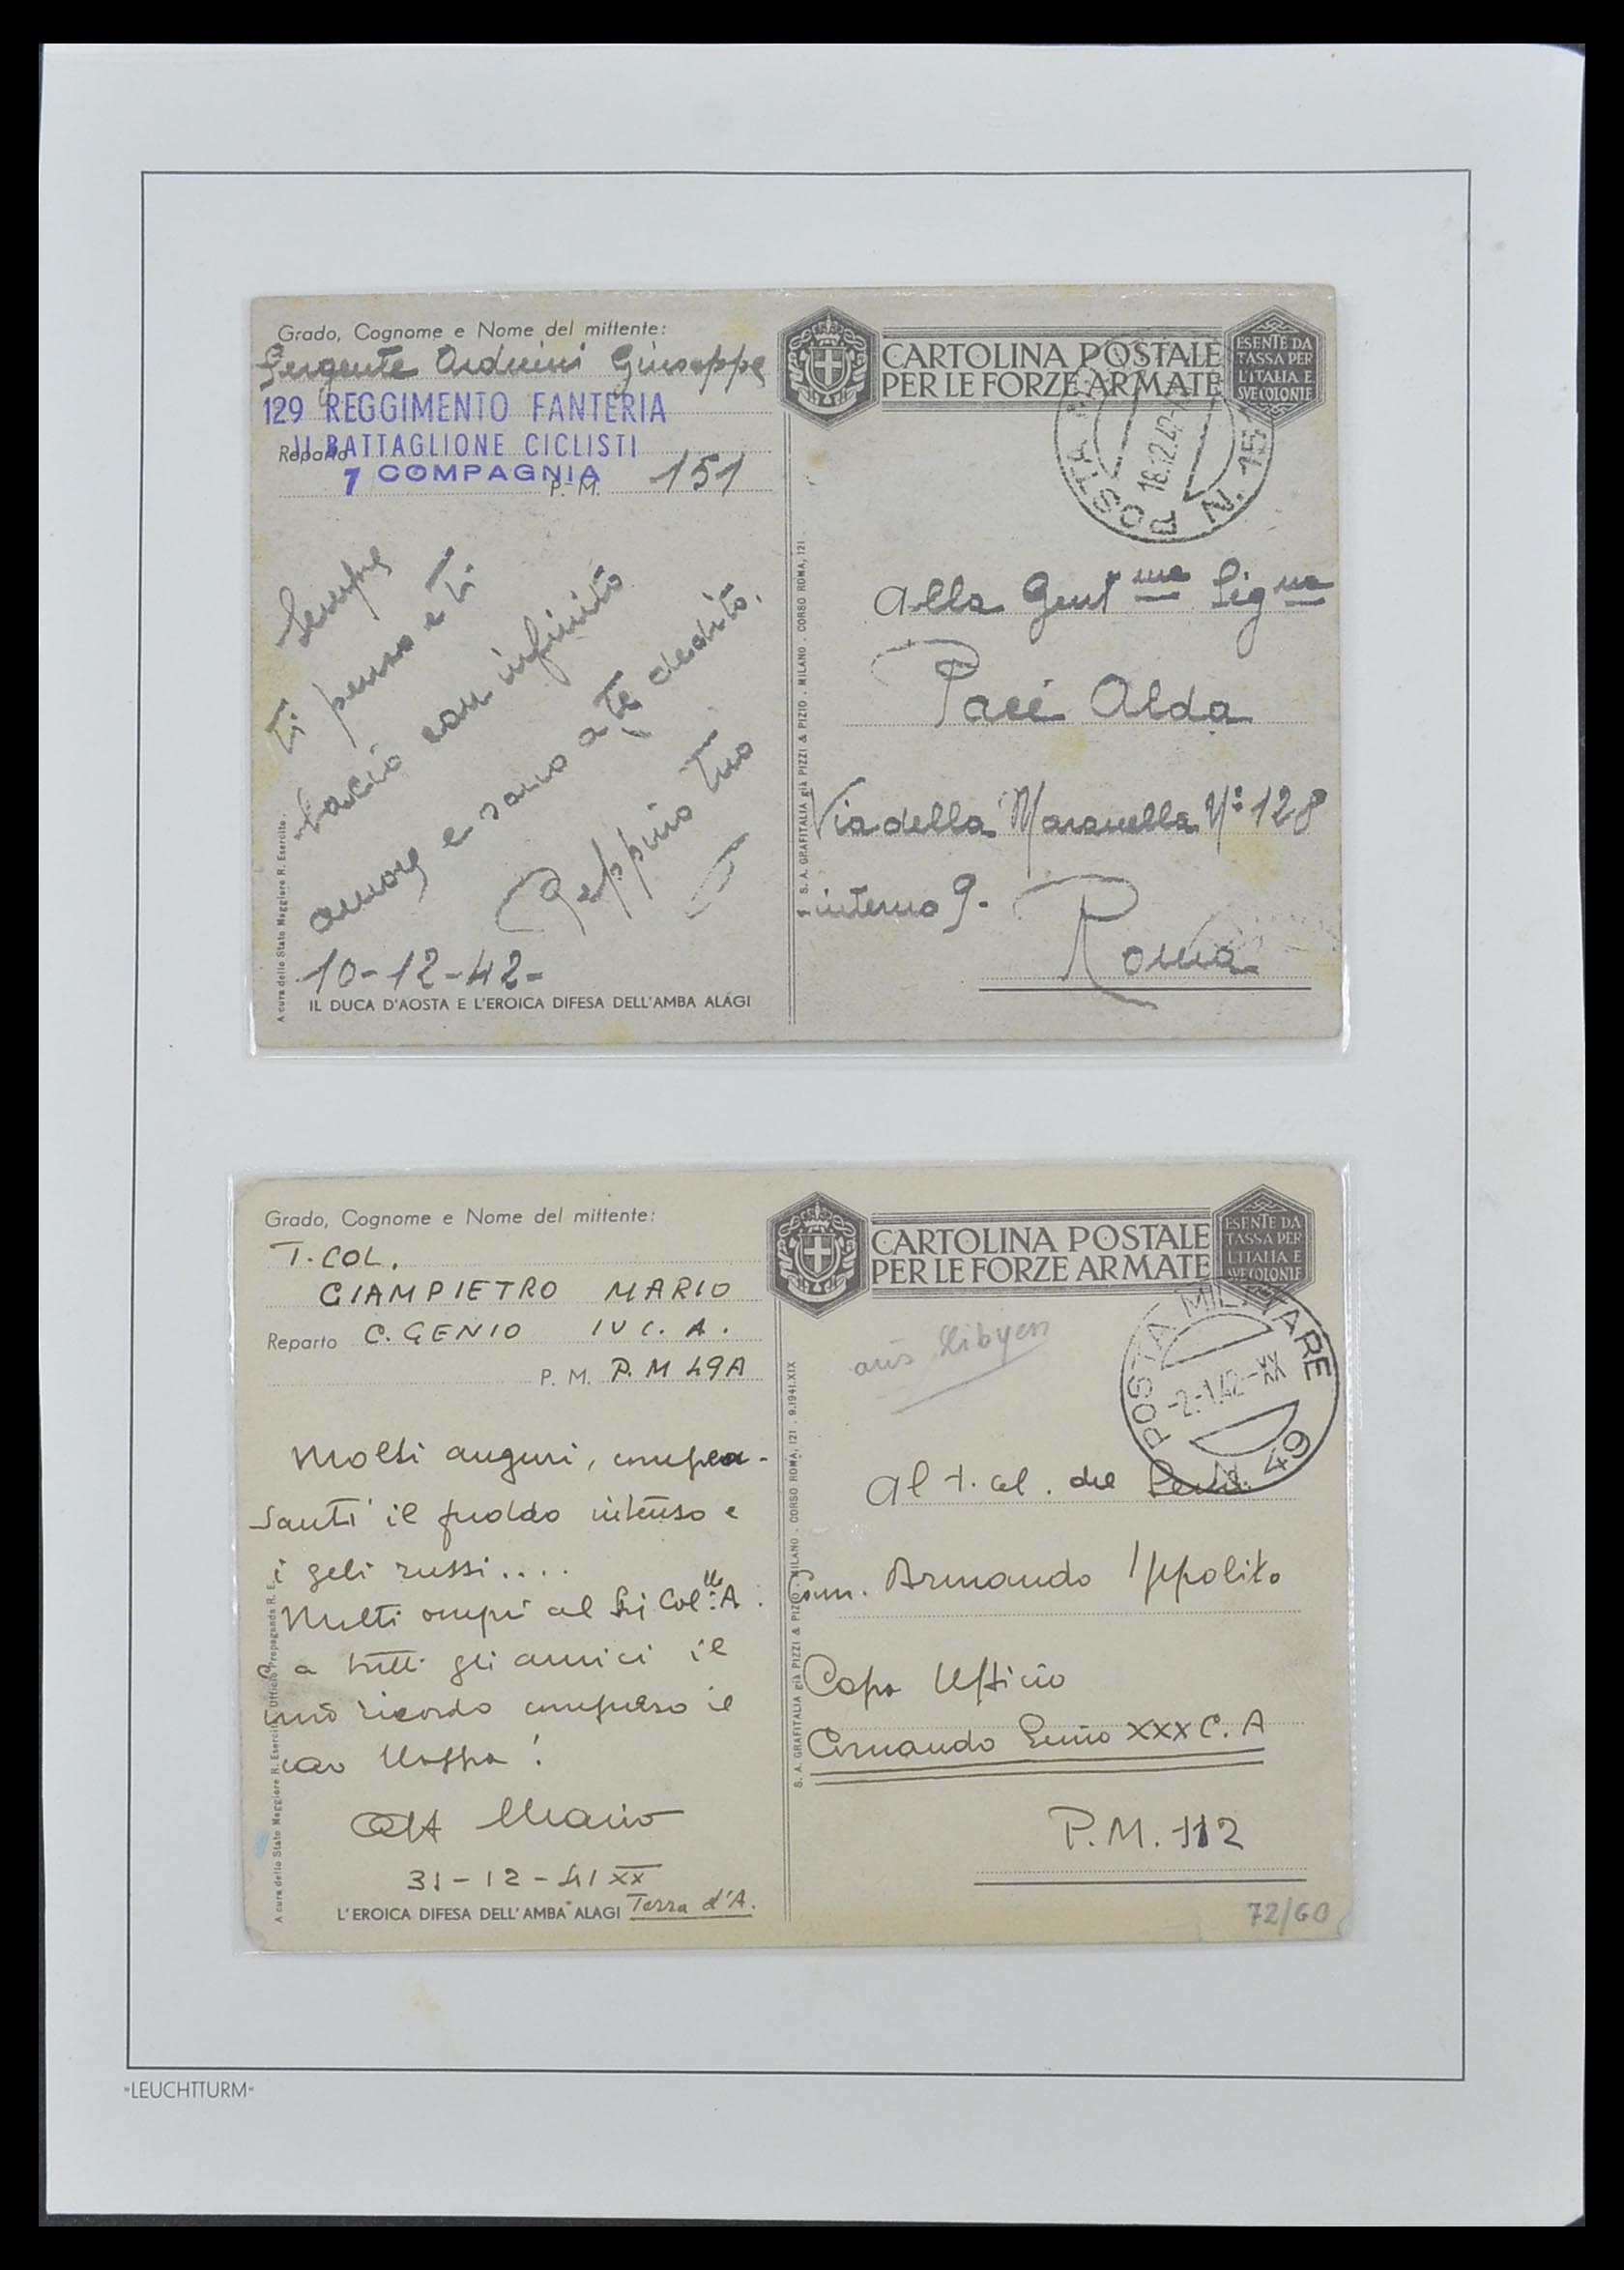 Grado, Cognome e Nome del mittente:
Sergente Arduini Giuseppe
129 REGGIMENTO FANTERIA
II BATTAGLIONE CICLISTI
Reparto
7 COMPAGNIA
P. M. 151
Sempre
ti penso e ti
bacio con infinito
amore e sono a te devoto.
Peppino tuo
10-12-42-
IL DUCA D'AOSTA E L'EROICA DIFESA DELL'AMBA ALAGI
A cura dello Stato Maggiore R. Esercito.
S. A. GRAFITALIA già PIZZI & PIZIO . MILANO . CORSO ROMA, 121 .
CARTOLINA POSTALE
PER LE FORZE ARMATE
ESENTE DA
TASSA PER
L'ITALIA E
SVE COLONIE
POSTA
18.12.42
N. 151
Alla Gent ma Sig na
Pace Alda
Via della Maranella N° 128
interno 9.
Roma
Grado, Cognome e Nome del mittente:
T. COL.
GIAMPIETRO MARIO
Reparto C. GENIO IV C. A.
P. M. P. M 49A
Molti auguri,
santi il freddo intenso e
i geli russi....
Molti al Col A.
e a tutti gli amici il
mio ricordo compreso il
caro
Mario
31-12-41 XX
L'EROICA DIFESA DELL'AMBA ALAGI Terra d'A.
A cura dello Stato Maggiore R. Esercito Ufficio Propaganda R. E.
S. A. GRAFITALIA già PIZZI & PIZIO . MILANO . CORSO ROMA, 121 . 9.1941.XIX
CARTOLINA POSTALE
PER LE FORZE ARMATE
ESENTE DA
TASSA PER
L'ITALIA E
SVE COLONIE
aus Libyen
POSTA MILITARE
-2.1.42-XX
N. 49
Al t. col. del Genio
Com. Armando Ippolito
Capo Ufficio
Comando Genio XXX C. A
P.M. 112
72/60
"LEUCHTTURM"